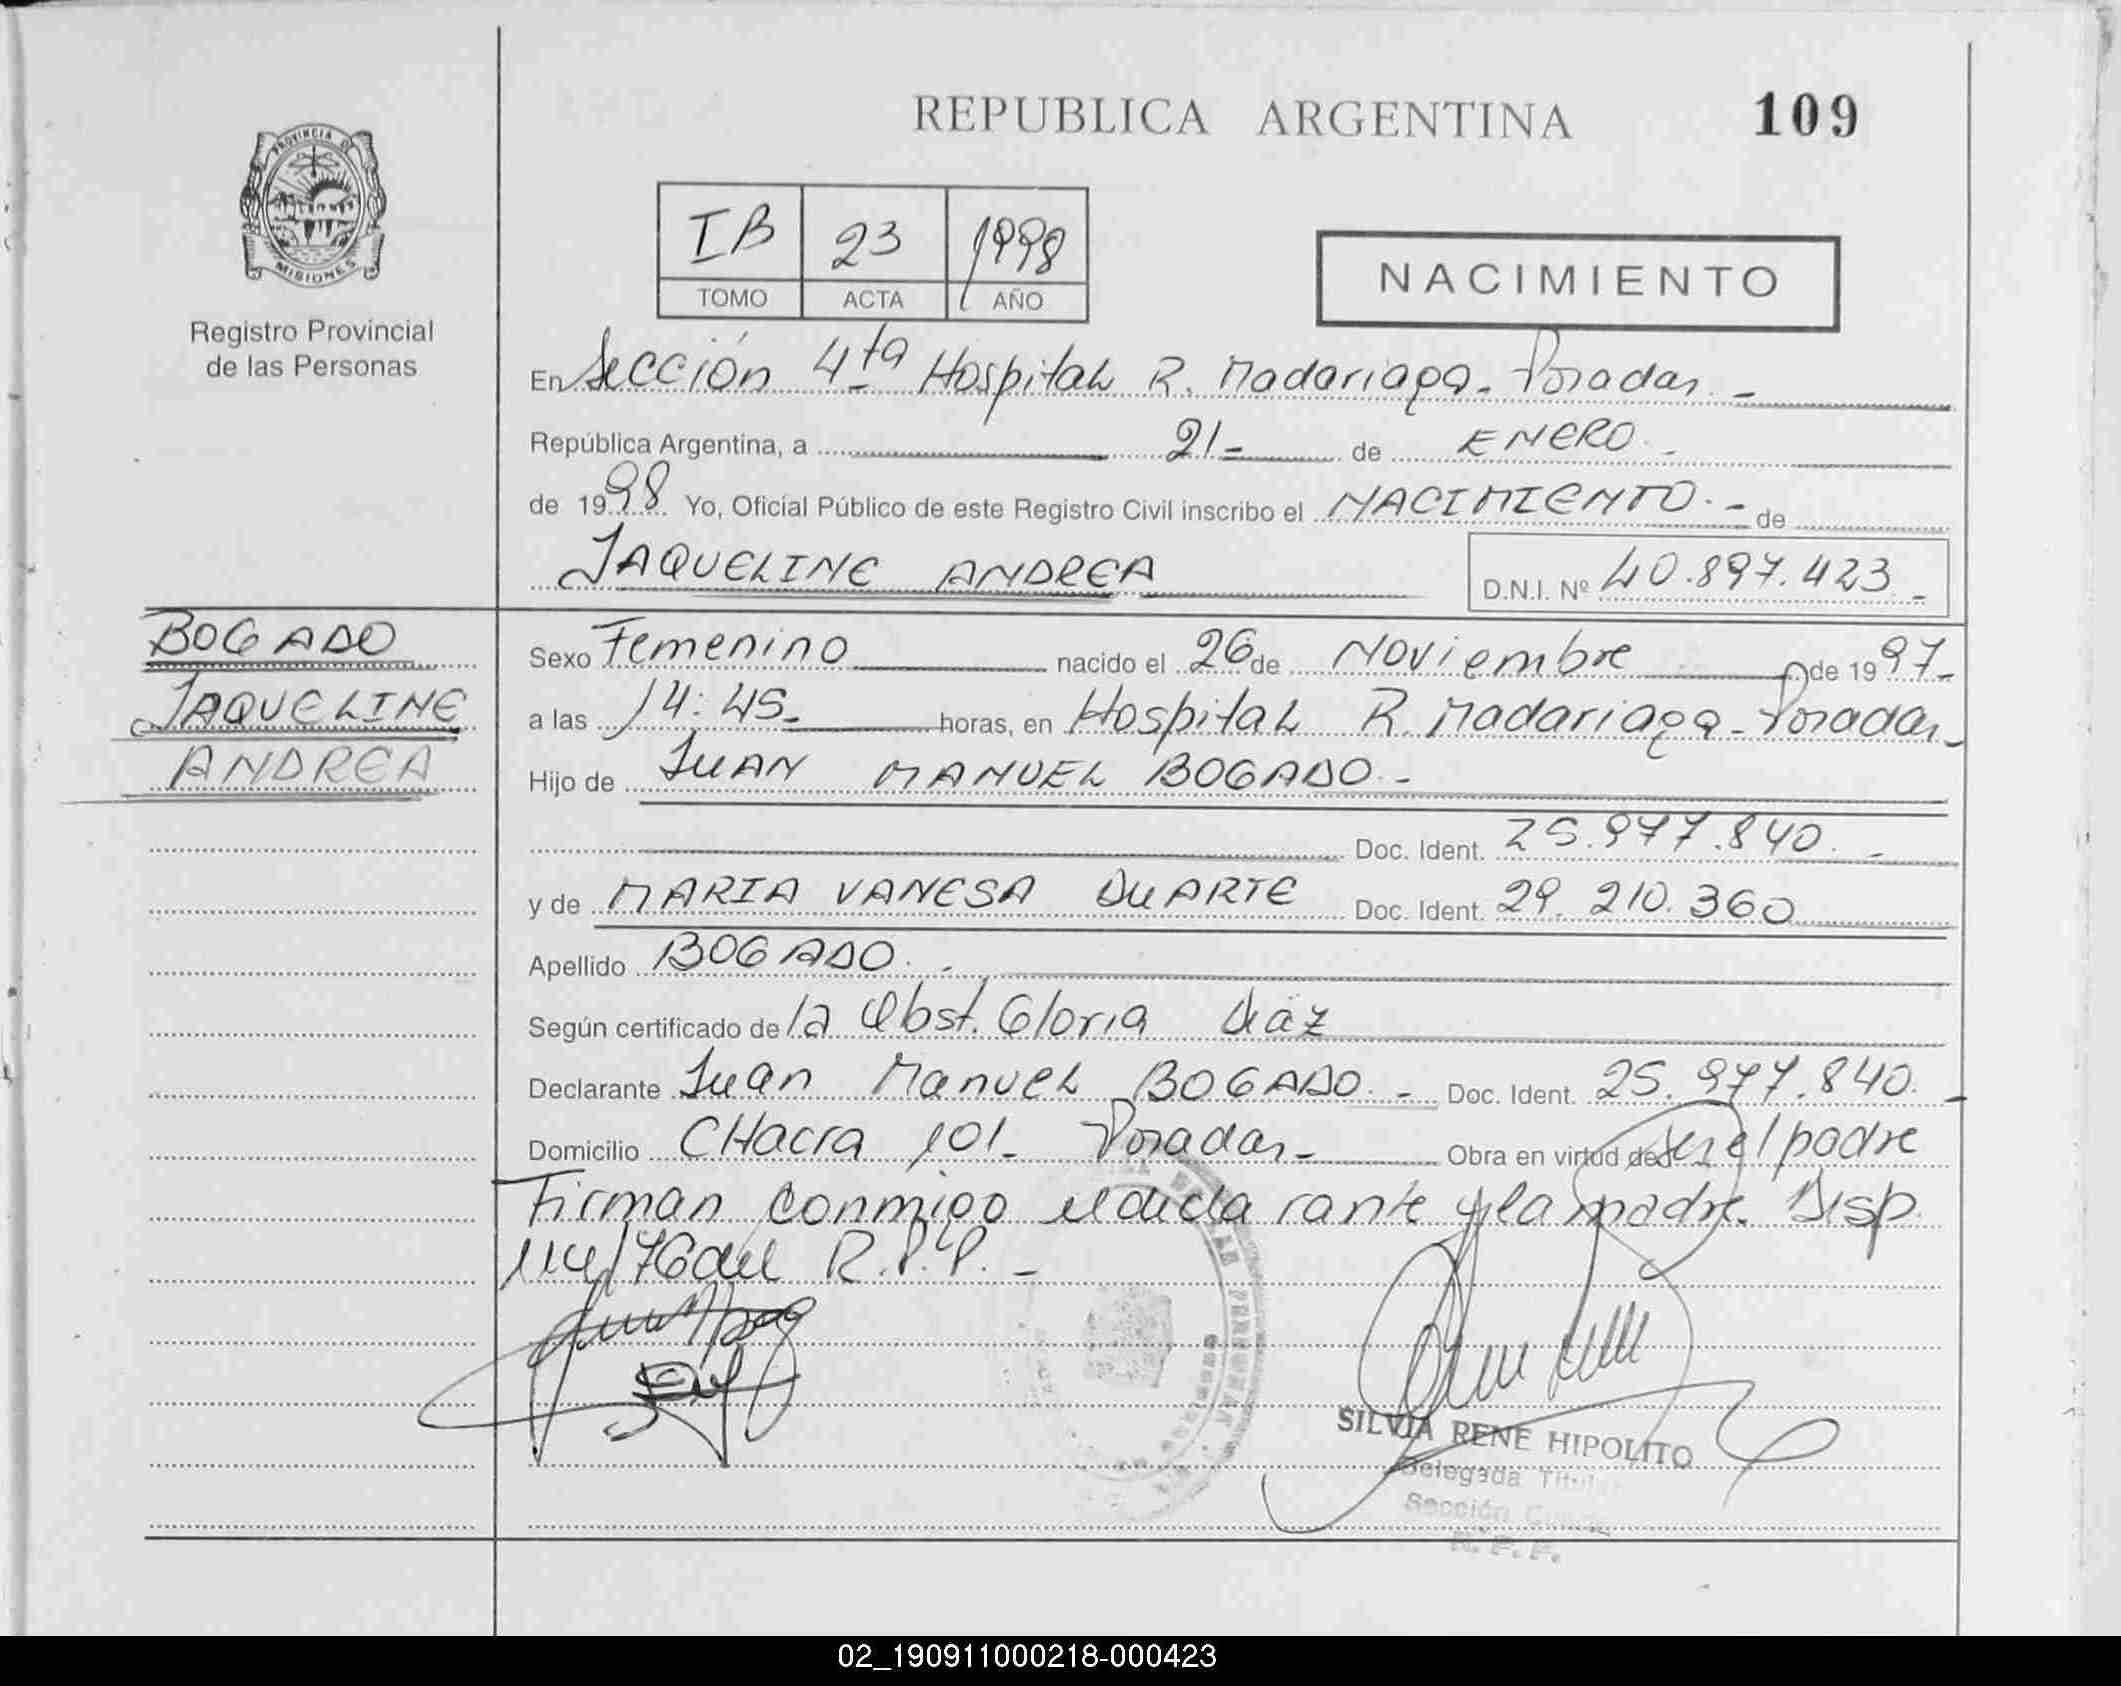 REPUBLICA ARGENTINA 109
PROVINCIA DE
MISIONES
Registro Provincial
de las Personas
IB 23 1998
TOMO ACTA AÑO
NACIMIENTO
En Sección 4ta Hospital R. Madariaga - Posadas. -
República Argentina, a 21 - de ENERO. -
de 1998. Yo, Oficial Público de este Registro Civil inscribo el NACIMIENTO. - de
JAQUELINE ANDREA D.N.I. Nº 40.897.423 -
BOGADO
JAQUELINE
ANDREA
Sexo Femenino nacido el 26 de Noviembre de 1997 -
a las 14:45 - horas, en Hospital R. Madariaga - Posadas -
Hijo de JUAN MANUEL BOGADO. -
Doc. Ident. 25.977.840. -
y de MARIA VANESA DUARTE Doc. Ident. 29.210.360
Apellido BOGADO. -
Según certificado de la Obst. Gloria Diaz
Declarante Juan Manuel BOGADO. - Doc. Ident. 25.977.840. -
Domicilio CHacra 101 - Posadas - Obra en virtud de ser el padre
Firman conmigo el declarante y la madre. Disp.
114/76 del R.P.P. -
SILVIA RENE HIPOLITO
Delegada
Sección
R.P.P.
02_190911000218-000423